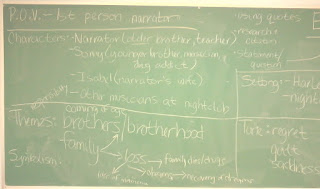 P.O.V. - 1st person narrator
Characters: - Narrator (older brother, teacher)
- Sonny (younger brother, musician, drug addict)
- Isabel (narrator's wife)
- other musicians at nightclub
using quotes
statement/
question
Setting: - Harle
- night
coming of age
Themes: brothers/brotherhood
family
loss → family deaths/drugs
loss of innocence
Symbolism:
Tone: regret
guilt
sadness